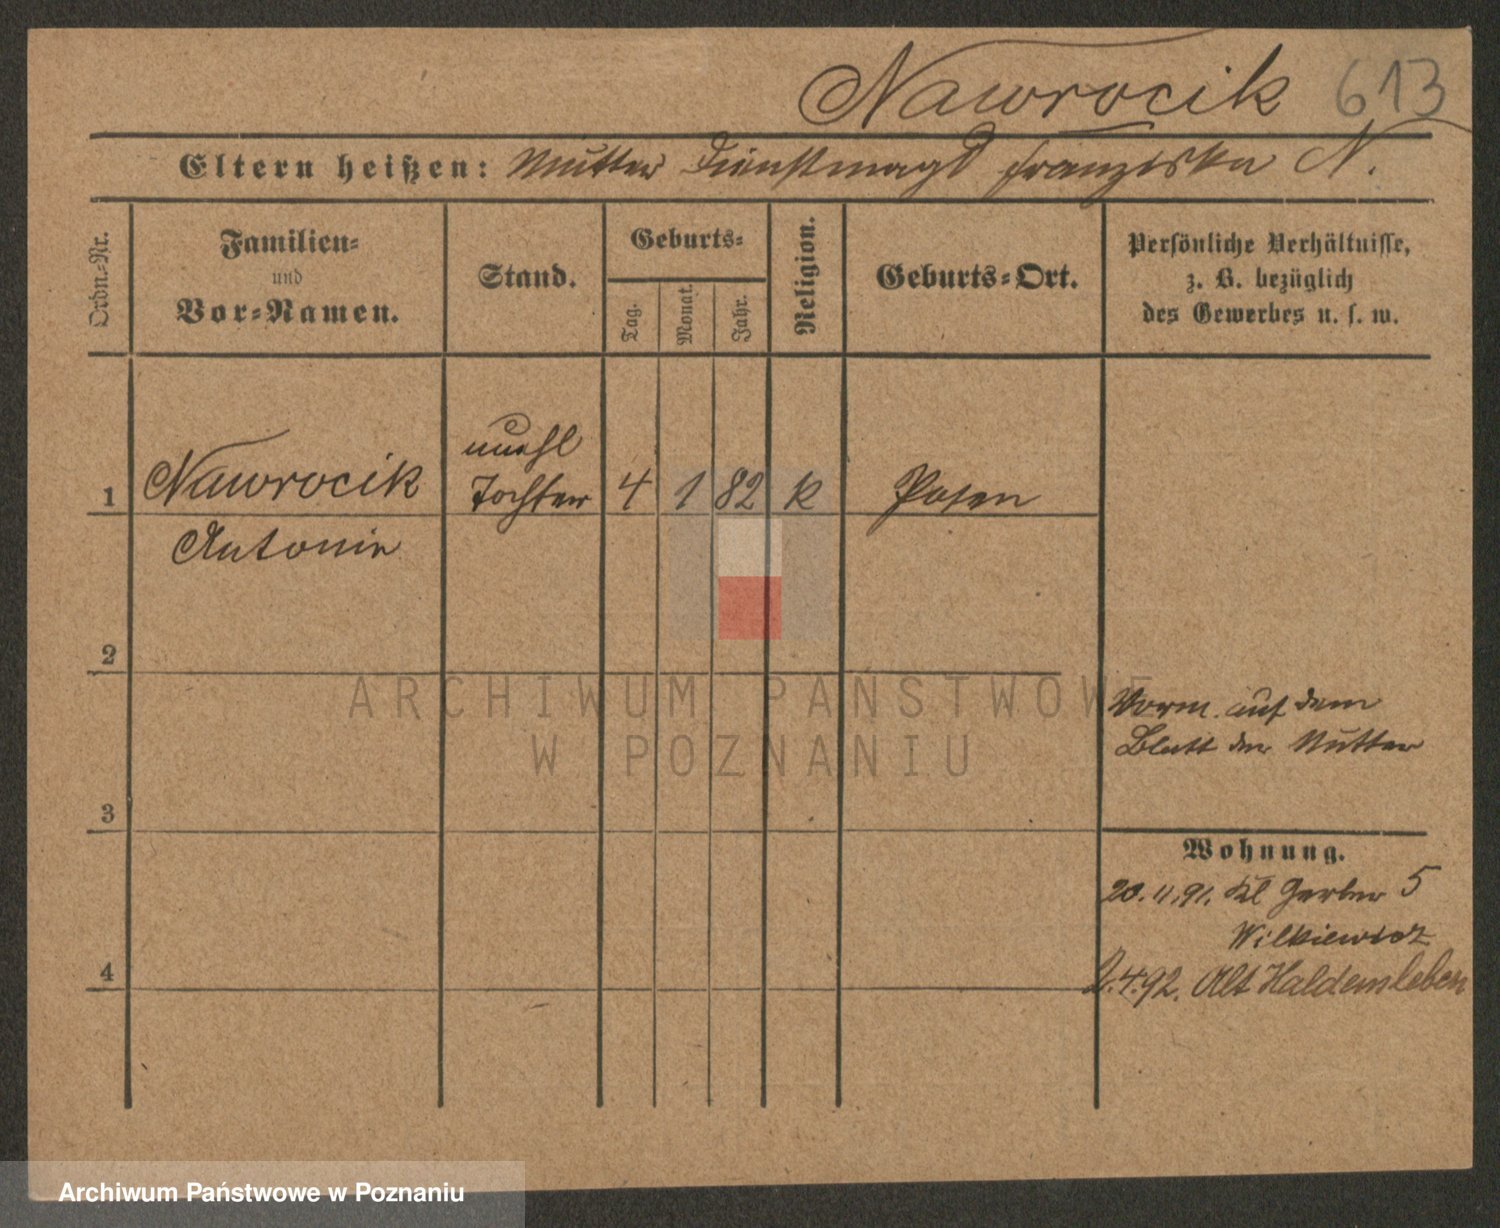 Nawrocik 613
Eltern heißen: Mutter Dienstmagd Franziska N.
Ordn.-Nr.
Familien-
und
Vor-Namen.
Stand.
Geburts-
Tag.
Monat.
Jahr.
Religion.
Geburts-Ort.
Persönliche Verhältnisse,
z. B. bezüglich
des Gewerbes u. s. w.
unehl
1 Nawrocik Tochter 4 1 82 k Posen
Antonie
2
Vorm. auf dem
Blatt der Mutter
3
Wohnung.
20.11.91. Kl Gerber 5
Wilkiewicz
4
2.4.92. Alt Haldensleben
ARCHIWUM PAŃSTWOWE
W POZNANIU
Archiwum Państwowe w Poznaniu